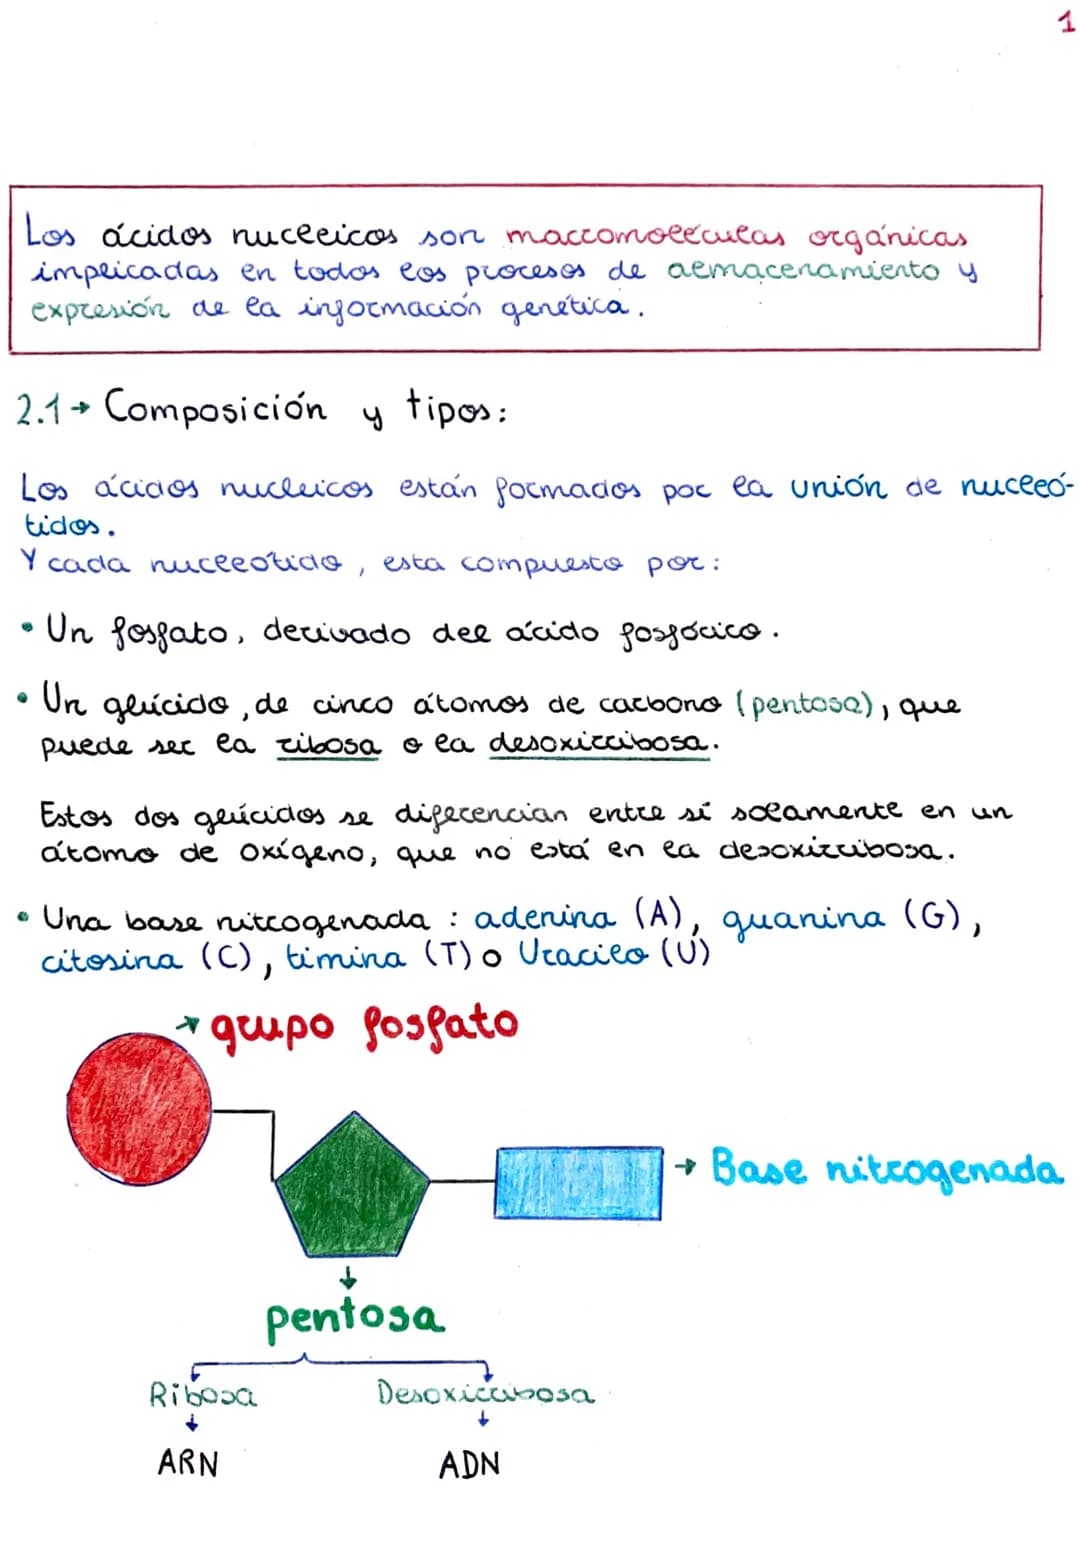 1
Los ácidos nucleicos son macromoléculas orgánicas
implicadas en todos los procesos de almacenamiento y
expresión de la información genética.
2.1→ Composición y tipos:
Los ácidos nucleicos están formados por la unión de nucleó-
tidos.
Y cada nucleótido, esta compuesto por:
• Un fosfato, derivado del ácido fosfórico.
• Un glúcido, de cinco átomos de carbono (pentosa), que
puede ser la ribosa o la desoxirribosa.
Estos dos glúcidos se diferencian entre sí solamente en un
átomo de oxígeno, que no está en la desoxirribosa.
• Una base nitrogenada : adenina (A), guanina (G),
citosina (C), timina (T) o Uracilo (U)
→ grupo fosfato
→ Base nitrogenada
↓
pentosa
Ribosa Desoxirribosa
↓ ↓
ARN ADN